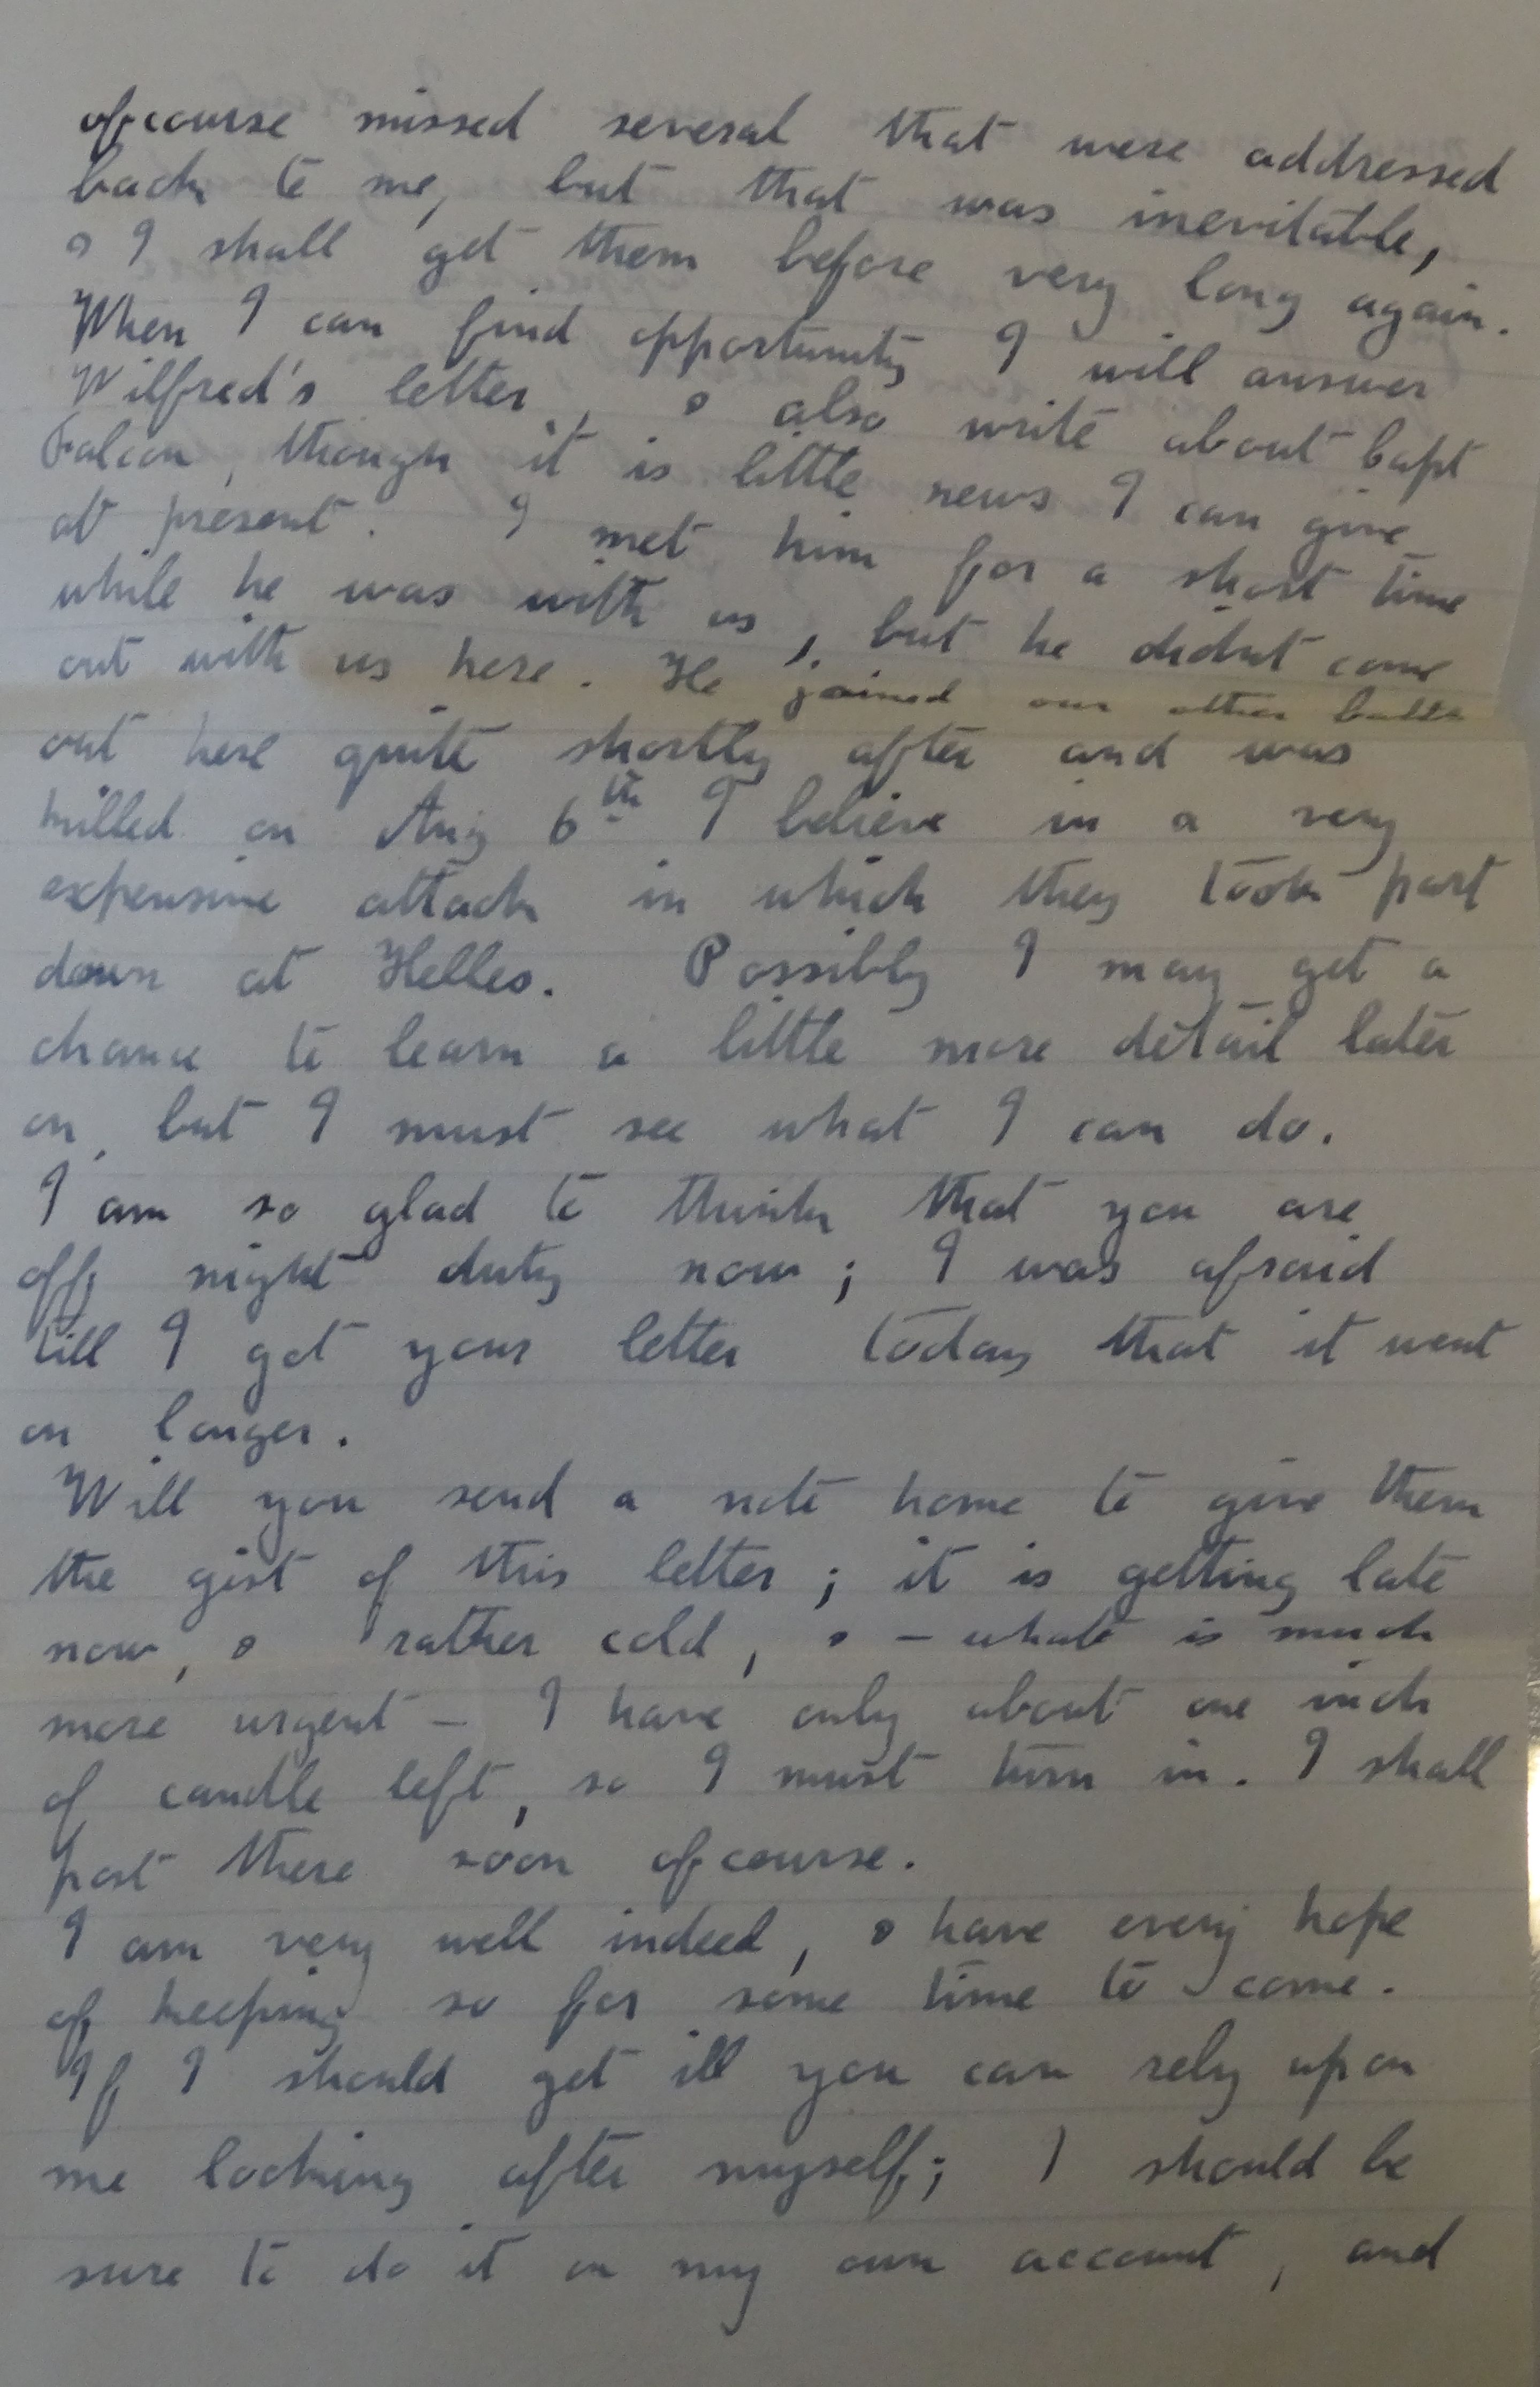 ofcourse missed several that were addressed
back to me, but that was inevitable,
& I shall get them before very long again.
When I can find opportunity I will answer
Wilfred's letter, & also write about Capt
Falcon, though it is little news I can give
at present. I met him for a short time
while he was with us, but he didnt come
out with us here. He joined our other battn
out here quite shortly after and was
killed on Aug 6th I believe in a very
expensive attack in which they took part
down at Helles. Possibly I may get a
chance to learn a little more detail later
on, but I must see what I can do.
I am so glad to think that you are
off night duty now; I was afraid
till I got your letter today that it went
on longer.
Will you send a note home to give them
the gist of this letter; it is getting late
now, & rather cold, & – what is much
more urgent – I have only about one inch
of candle left, so I must turn in. I shall
post these soon ofcourse.
I am very well indeed, & have every hope
of keeping so for some time to come.
If I should get ill you can rely upon
me looking after myself; I should be
sure to do it on my own account, and